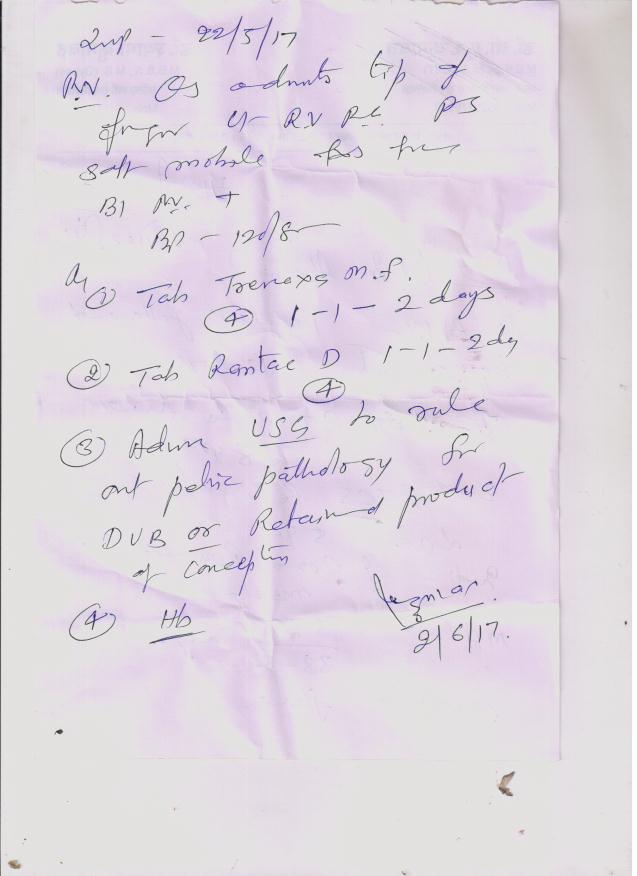 LMP - 22/5/17
P.V. Os admits tip of
finger Ut RV
soft mobile
Bl P.V. +
BP - 120/8
① Tab Trenaxa M.F.
④ 1-1- 2 days
② Tab Rantac D 1-1-2 dy
④
③ Advice USG to rule
out pelvic pathology for
DUB or Retained product
of conception
④ Hb
2/6/17.